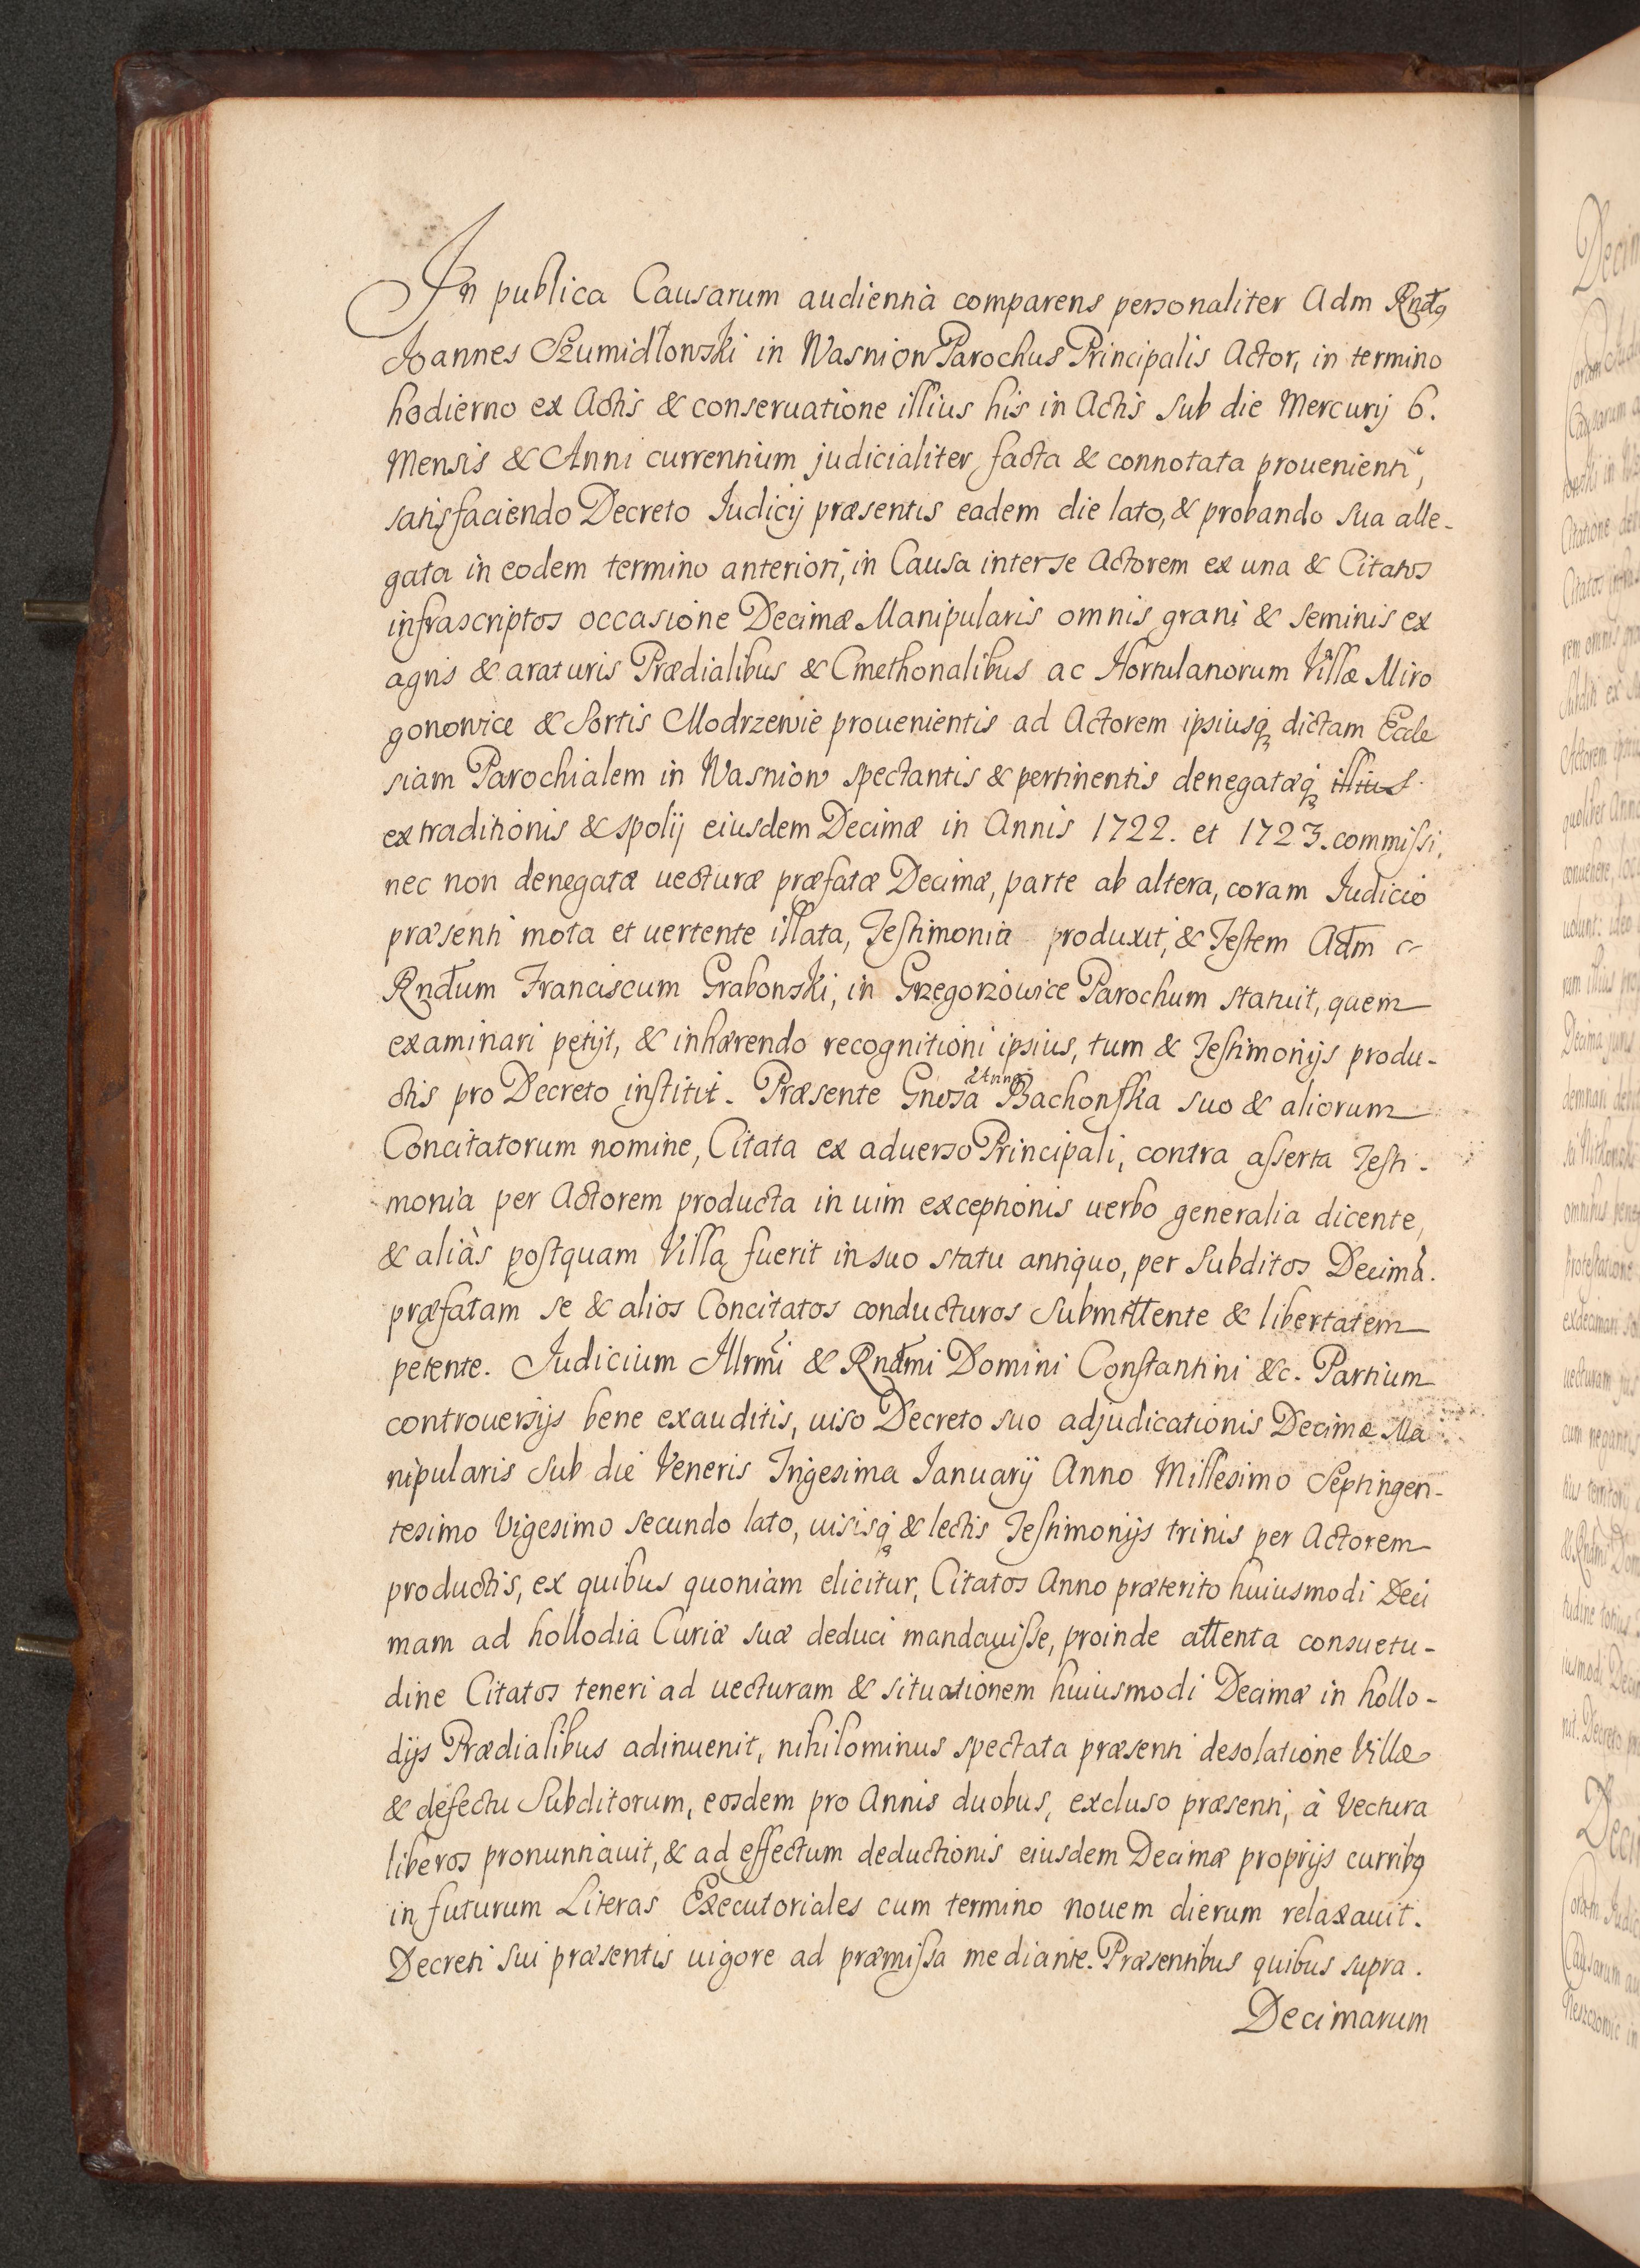 In publica Causarum audientia comparens personaliter Adm Rndꝯ
Joannes Szumidłowski in Wasniow Parochus Principalis Actor, in termino
hodierno ex Actis & conseruatione illius his in Actis sub die Mercurij 6.
Mensis & Anni currentium judicialiter facta & connotata prouenienti,
satisfaciendo Decreto Iudicij præsentis eadem die lato, & probando sua alle-
gata in eodem termino anteriori, in Causa inter se Actorem ex una & Citatos
infrascriptos occasione Decimæ Manipularis omnis grani & seminis ex
agris & araturis Prædialibus & Cmethonalibus ac Hortulanorum Villæ Miro
gonowice & Sortis Modrzewie prouenientis ad Actorem ipsiusqꝫ dictam Eccle
siam Parochialem in Wasniow spectantis & pertinentis denegatæqꝫ illius
extraditionis & spolij eiusdem Decimæ in Annis 1722. et 1723. commissi,
nec non denegatæ uecturæ præfatæ Decimæ, parte ab altera, coram Iudicio
præsenti mota et uertente illata, Testimonia produxit, & Testem Adm
Rndum Franciscum Grabowski, in Grzegorzowice Parochum statuit, quem
examinari petijt, & inhærendo recognitioni ipsius, tum & Testimonijs produ-
ctis pro Decreto institit. Præsente Gnosa Bachowska suo & aliorum
Concitatorum nomine, Citata ex aduerso Principali, contra asserta Testi-
monia per Actorem producta in uim exceptionis uerbo generalia dicente,
& aliàs postquam Villa fuerit in suo statu antiquo, per Subditos Decimã.
præfatam se & alios Concitatos conducturos submittente & libertatem
petente. Judicium Illrmi & Rndmi Domini Constantini &c. Partium
controuersijs bene exauditis, uiso Decreto suo adjudicationis Decimæ Ma
nipularis sub die Veneris Trigesima Ianuarij Anno Millesimo Septingen-
tesimo Vigesimo secundo lato, uisisqꝫ & lectis Testimonijs trinis per Actorem
productis, ex quibus quoniam elicitur, Citatos Anno præterito huiusmodi Deci
mam ad hollodia Curiæ suæ deduci mandauisse, proinde attenta consuetu-
dine Citatos teneri ad uecturam & situationem huiusmodi Decimæ in hollo-
dijs Prædialibus adinuenit, nihilominus spectata præsenti desolatione Villæ
& defectu Subditorum, eosdem pro Annis duobus, excluso præsenti, à Vectura
liberos pronuntiauit, & ad effectum deductionis eiusdem Decimæ proprijs curribꝯ
in futurum Literas Executoriales cum termino nouem dierum relaxauit.
Decreti sui præsentis uigore ad præmissa mediante. Præsentibus quibus supra.
Decimarum